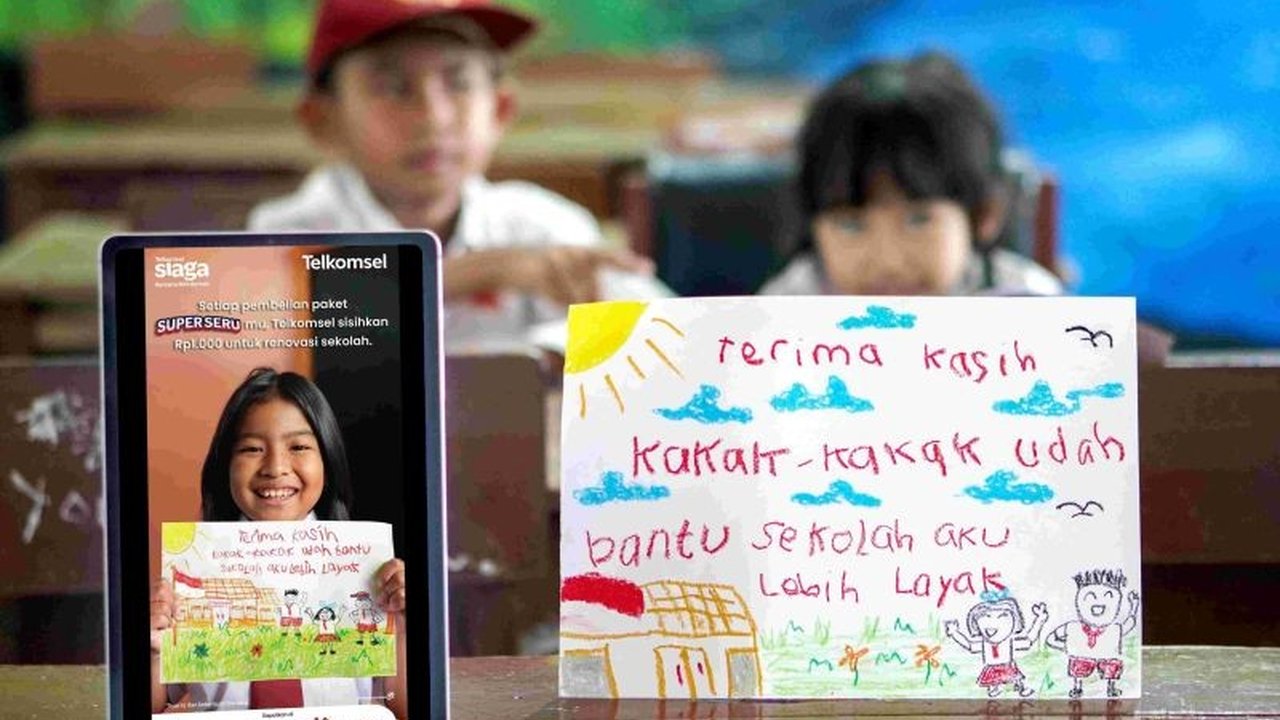 Telkomsel
siaga
Telkomsel
Setiap pembelian paket
SUPER SERU mu, Telkomsel sisihkan
Rp1.000 untuk renovasi sekolah.
Terima kasih
kakak-kakak udah bantu
sekolah aku lebih Layak
Terima kasih
kakak-kakak udah
bantu sekolah aku
Lebih Layak